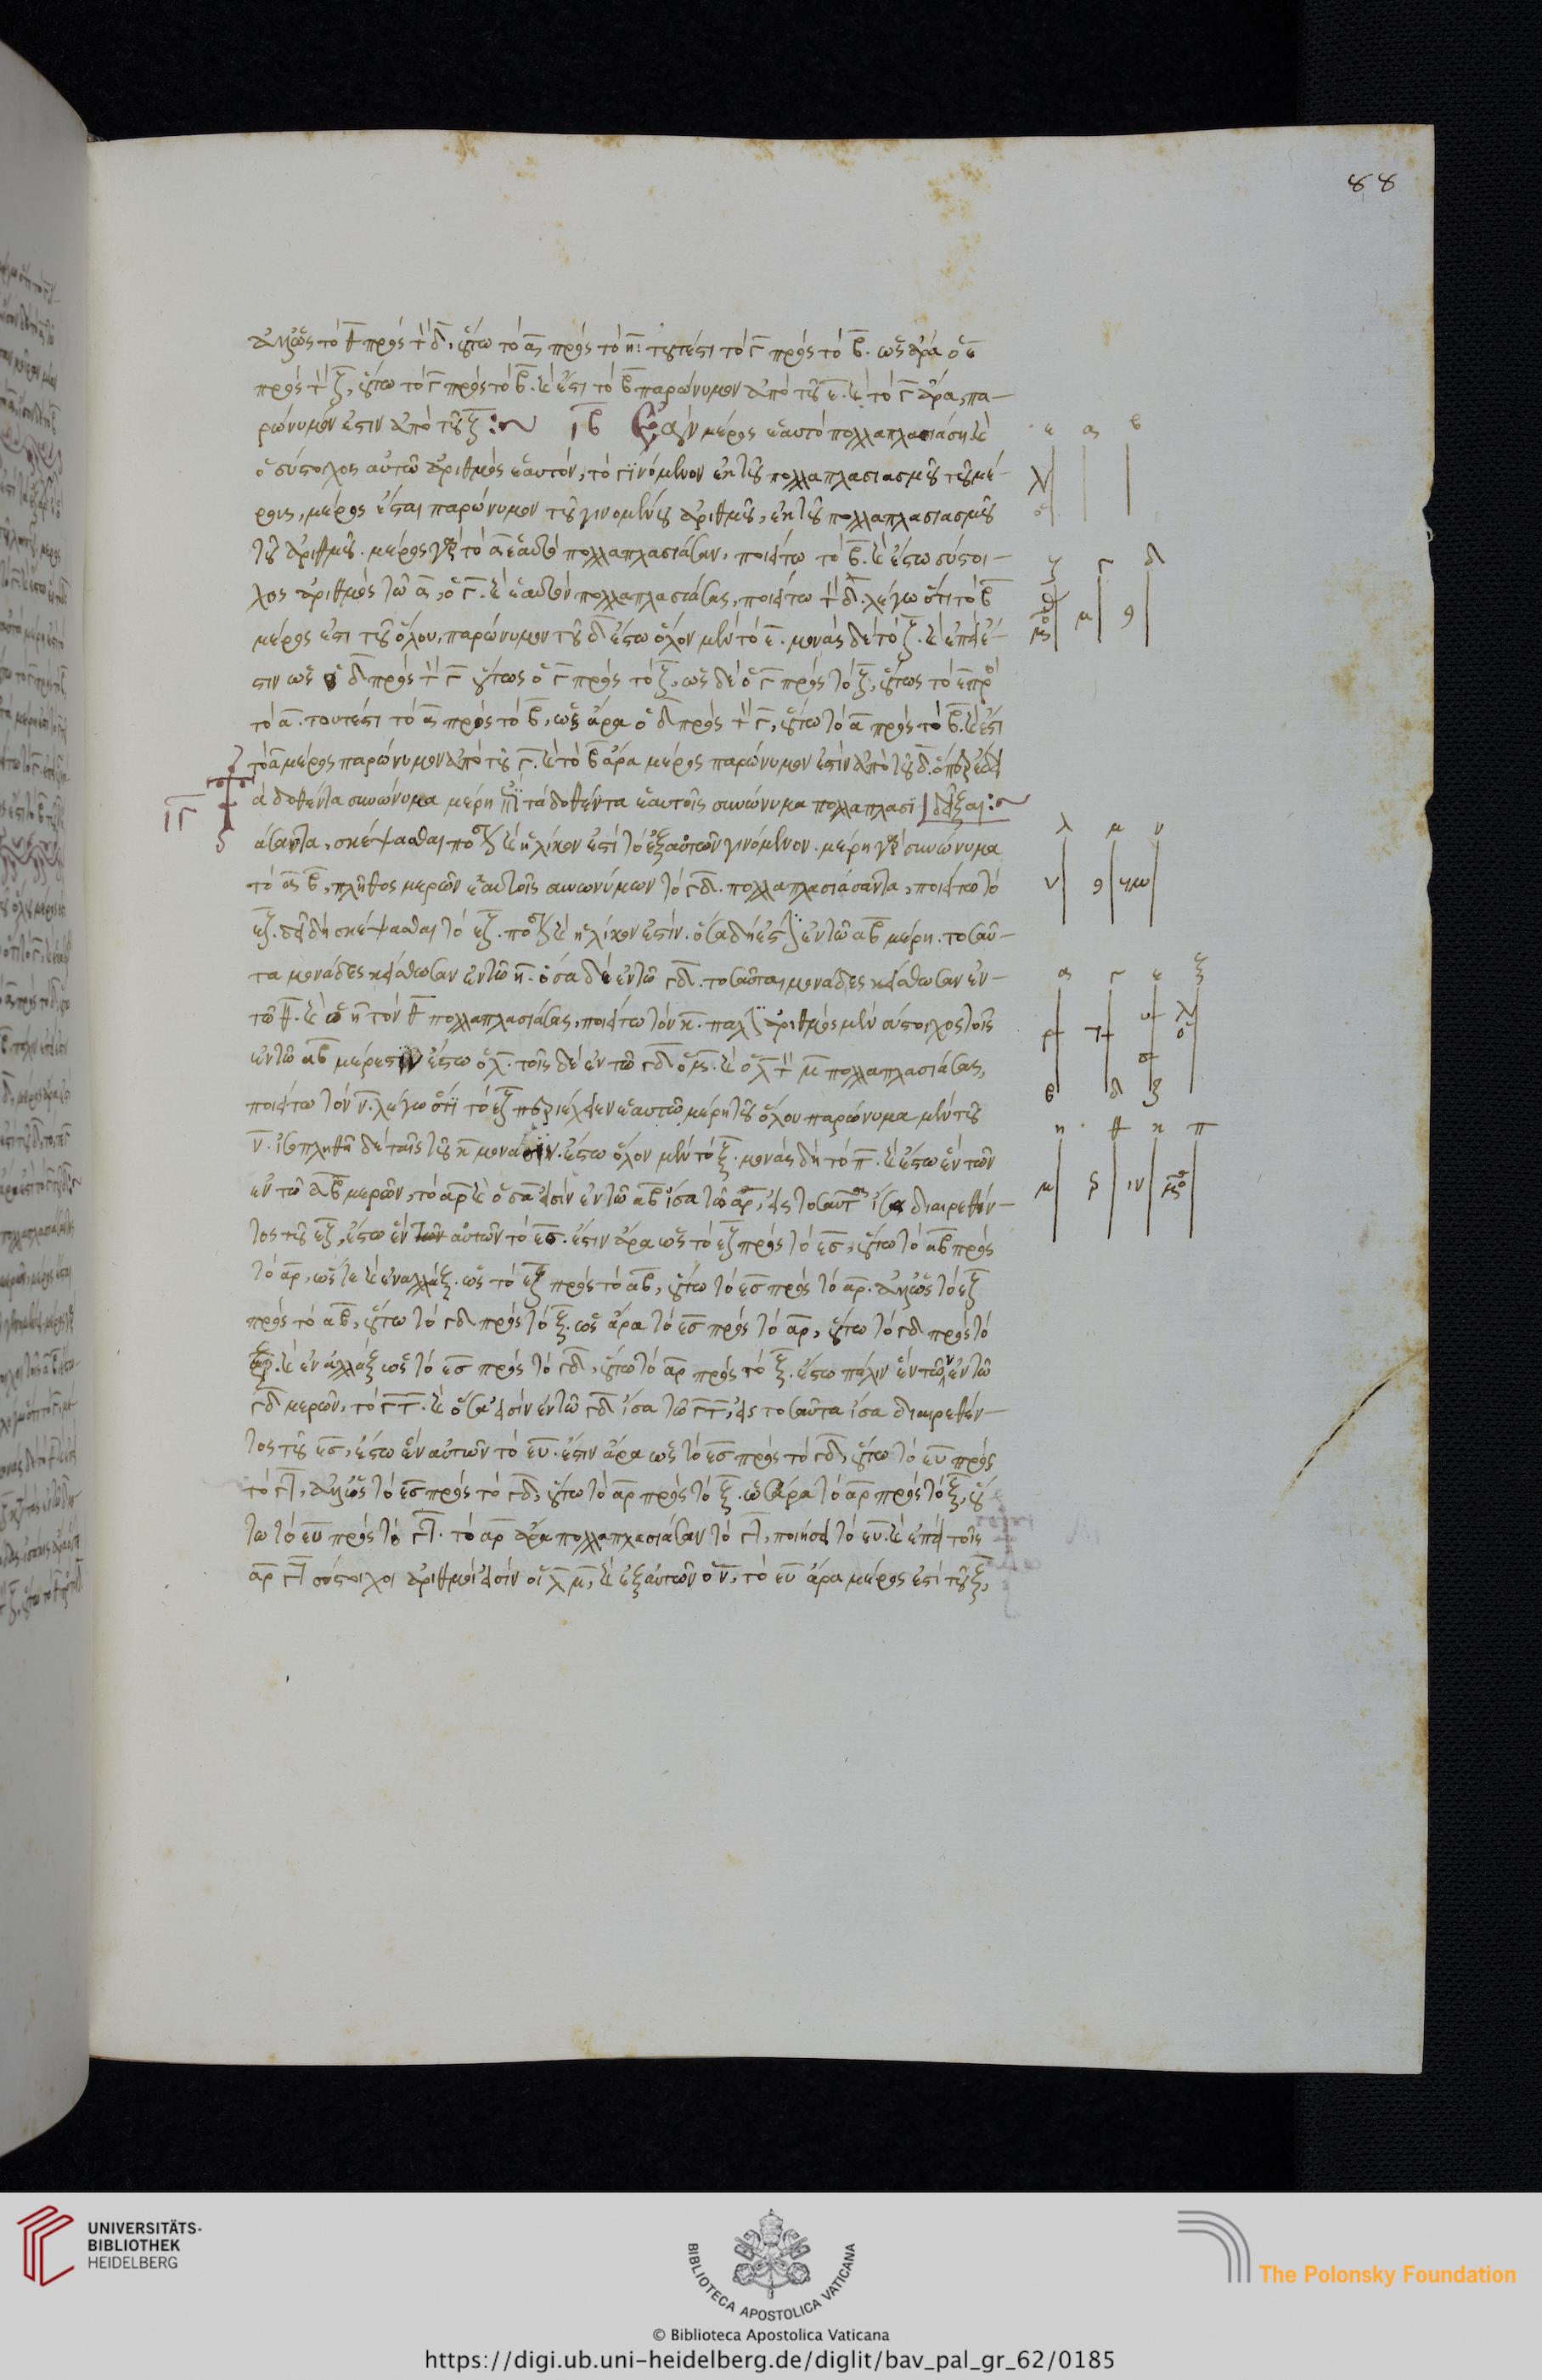 88
ἀλλ' ὡς τὸ θ πρὸς τὸν δ, οὕτω τὸ α πρὸς τὸ η· τουτέστι τὸ γ πρὸς τὸ β. ὡς ἄρα ὁ ε
πρὸς τὸν ζ, οὕτω τὸ γ πρὸς τὸ β. καὶ ἔστι τὸ β παρώνυμον ἀπὸ τοῦ ε. καὶ τὸ γ ἄρα, πα-
ρώνυμόν ἐστιν ἀπὸ τοῦ ζ :~ ιβ Ἐὰν μέρος ἑαυτὸ πολλαπλασιάσῃ καὶ
ὁ σύστοιχος αὐτῷ ἀριθμὸς ἑαυτόν, τὸ γινόμενον ἐκ τοῦ πολλαπλασιασμοῦ τοῦ μέ-
ρους, μέρος ἔσται παρώνυμον τοῦ γινομένου ἀριθμοῦ, ἐκ τοῦ πολλαπλασιασμοῦ
τοῦ ἀριθμοῦ. μέρος γὰρ τὸ α ἑαυτὸ πολλαπλασιάσαν, ποιείτω τὸ β. καὶ ἔστω σύστοι-
χος ἀριθμὸς τῷ α, ὁ γ. καὶ ἑαυτὸν πολλαπλασιάσας, ποιείτω τὸν δ. λέγω ὅτι τὸ β
μέρος ἐστὶ τοῦ ὅλου, παρώνυμον τοῦ δ ἔστω ὅλον μὲν τὸ ε. μονὰς δὲ τὸ ζ. καὶ ἐπεί ἐ-
στιν ὡς ὁ δ πρὸς τὸν γ οὕτως ὁ γ πρὸς τὸ ζ, ὡς δὲ ὁ γ πρὸς τὸ ζ, οὕτως τὸ ε πρὸς
τὸ α. τουτέστι τὸ α πρὸς τὸ β, ὡς ἄρα ὁ δ πρὸς τὸν γ, οὕτω τὸ α πρὸς τὸ β. καὶ ἔστι
τὸ α μέρος παρώνυμον ἀπὸ τοῦ γ. καὶ τὸ β ἄρα μέρος παρώνυμόν ἐστιν ἀπὸ τοῦ δ. ὅπερ ἔδει
ιγ Τὰ δοθέντα συνώνυμα μέρη ἐπὶ τὰ δοθέντα ἑαυτοῖς συνώνυμα πολλαπλασι | δεῖξαι :~
άσαντα, σκέψασθαι πόσον καὶ ἡλίκον ἐστὶ τὸ ἐξ αὐτῶν γινόμενον. μέρη γὰρ συνώνυμα
τὸ α β, πλῆθος μερῶν ἑαυτοῖς συνωνύμων τὸ γδ. πολλαπλασιάσαντα, ποιείτω τὸ
εζ. δεῖ δὴ σκέψασθαι τὸ εζ. πόσον καὶ ἡλίκον ἐστίν. ὅσα δή ἐστιν ἐν τῷ αβ μέρη. τοσαῦ-
τα μονάδες κείσθωσαν ἐν τῷ η. ὅσα δὲ ἐν τῷ γδ. τοσαῦται μονάδες κείσθωσαν ἐν
τῷ θ. καὶ ὁ η τὸν θ πολλαπλασιάσας, ποιείτω τὸν κ. πάλιν ἀριθμὸς μὲν σύστοιχος τοῖς
ἐν τῷ αβ μέρεσιν ἔστω ὁ λ. τοῖς δὲ ἐν τῷ γδ ὁ μ. καὶ ὁ λ τὸν μ πολλαπλασιάσας,
ποιείτω τὸν ν. λέγω ὅτι τὸ εζ περιέχει ἐν ἑαυτῷ μέρη τοῦ ὅλου παρώνυμα μὲν τοῦ
ν. ἰσοπληθῆ δὲ ταῖς τοῦ κ μονάσιν. ἔστω ὅλον μὲν τὸ ξ. μονὰς δὴ τὸ π. καὶ ἔστω ἓν τῶν
ἐν τῷ αβ μερῶν, τὸ αρ καὶ ὅσα εἰσὶν ἐν τῷ αβ ἴσα τῷ αρ, εἰς τοσαῦτα ἴσα διαιρεθέν-
τος τοῦ εζ, ἔστω ἓν τῶν αὐτῶν τὸ εσ. ἔστιν ἄρα ὡς τὸ εζ πρὸς τὸ εσ, οὕτω τὸ αβ πρὸς
τὸ αρ, ὥστε καὶ ἐναλλάξ. ὡς τὸ εζ πρὸς τὸ αβ, οὕτω τὸ εσ πρὸς τὸ αρ. ἀλλ' ὡς τὸ εζ
πρὸς τὸ αβ, οὕτω τὸ γδ πρὸς τὸ ξ. ὡς ἄρα τὸ εσ πρὸς τὸ αρ, οὕτω τὸ γδ πρὸς τὸ
ξ. καὶ ἐναλλὰξ ὡς τὸ εσ πρὸς τὸ γδ, οὕτω τὸ αρ πρὸς τὸ ξ. ἔστω πάλιν ἓν τῶν ἐν τῷ
γδ μερῶν, τὸ γτ. καὶ ὅσα εἰσὶν ἐν τῷ γδ ἴσα τῷ γτ, εἰς τοσαῦτα ἴσα διαιρεθέν-
τος τοῦ εσ, ἔστω ἓν αὐτῶν τὸ ευ. ἔστιν ἄρα ὡς τὸ εσ πρὸς τὸ γδ, οὕτω τὸ ευ πρὸς
τὸ γτ, ἀλλ' ὡς τὸ εσ πρὸς τὸ γδ, οὕτω τὸ αρ πρὸς τὸ ξ. ὡς ἄρα τὸ αρ πρὸς τὸ ξ, οὕ
τω τὸ ευ πρὸς τὸ γτ. τὸ αρ ἄρα πολλαπλασιάσαν τὸ γτ, ποιήσει τὸ ευ. καὶ ἐπεὶ τοῖς
αρ γτ σύστοιχοι ἀριθμοί εἰσιν οἱ λ μ, καὶ ἐξ αὐτῶν ὁ ν, τὸ ευ ἄρα μέρος ἐστὶ τοῦ ξ,
ε α β
ζ γ δ
μ θ
λ μ ν
α γ ε ξ
β δ ζ
η θ κ π
UNIVERSITÄTS-
BIBLIOTHEK
HEIDELBERG
BIBLIOTECA APOSTOLICA VATICANA
The Polonsky Foundation
© Biblioteca Apostolica Vaticana
https://digi.ub.uni-heidelberg.de/diglit/bav_pal_gr_62/0185